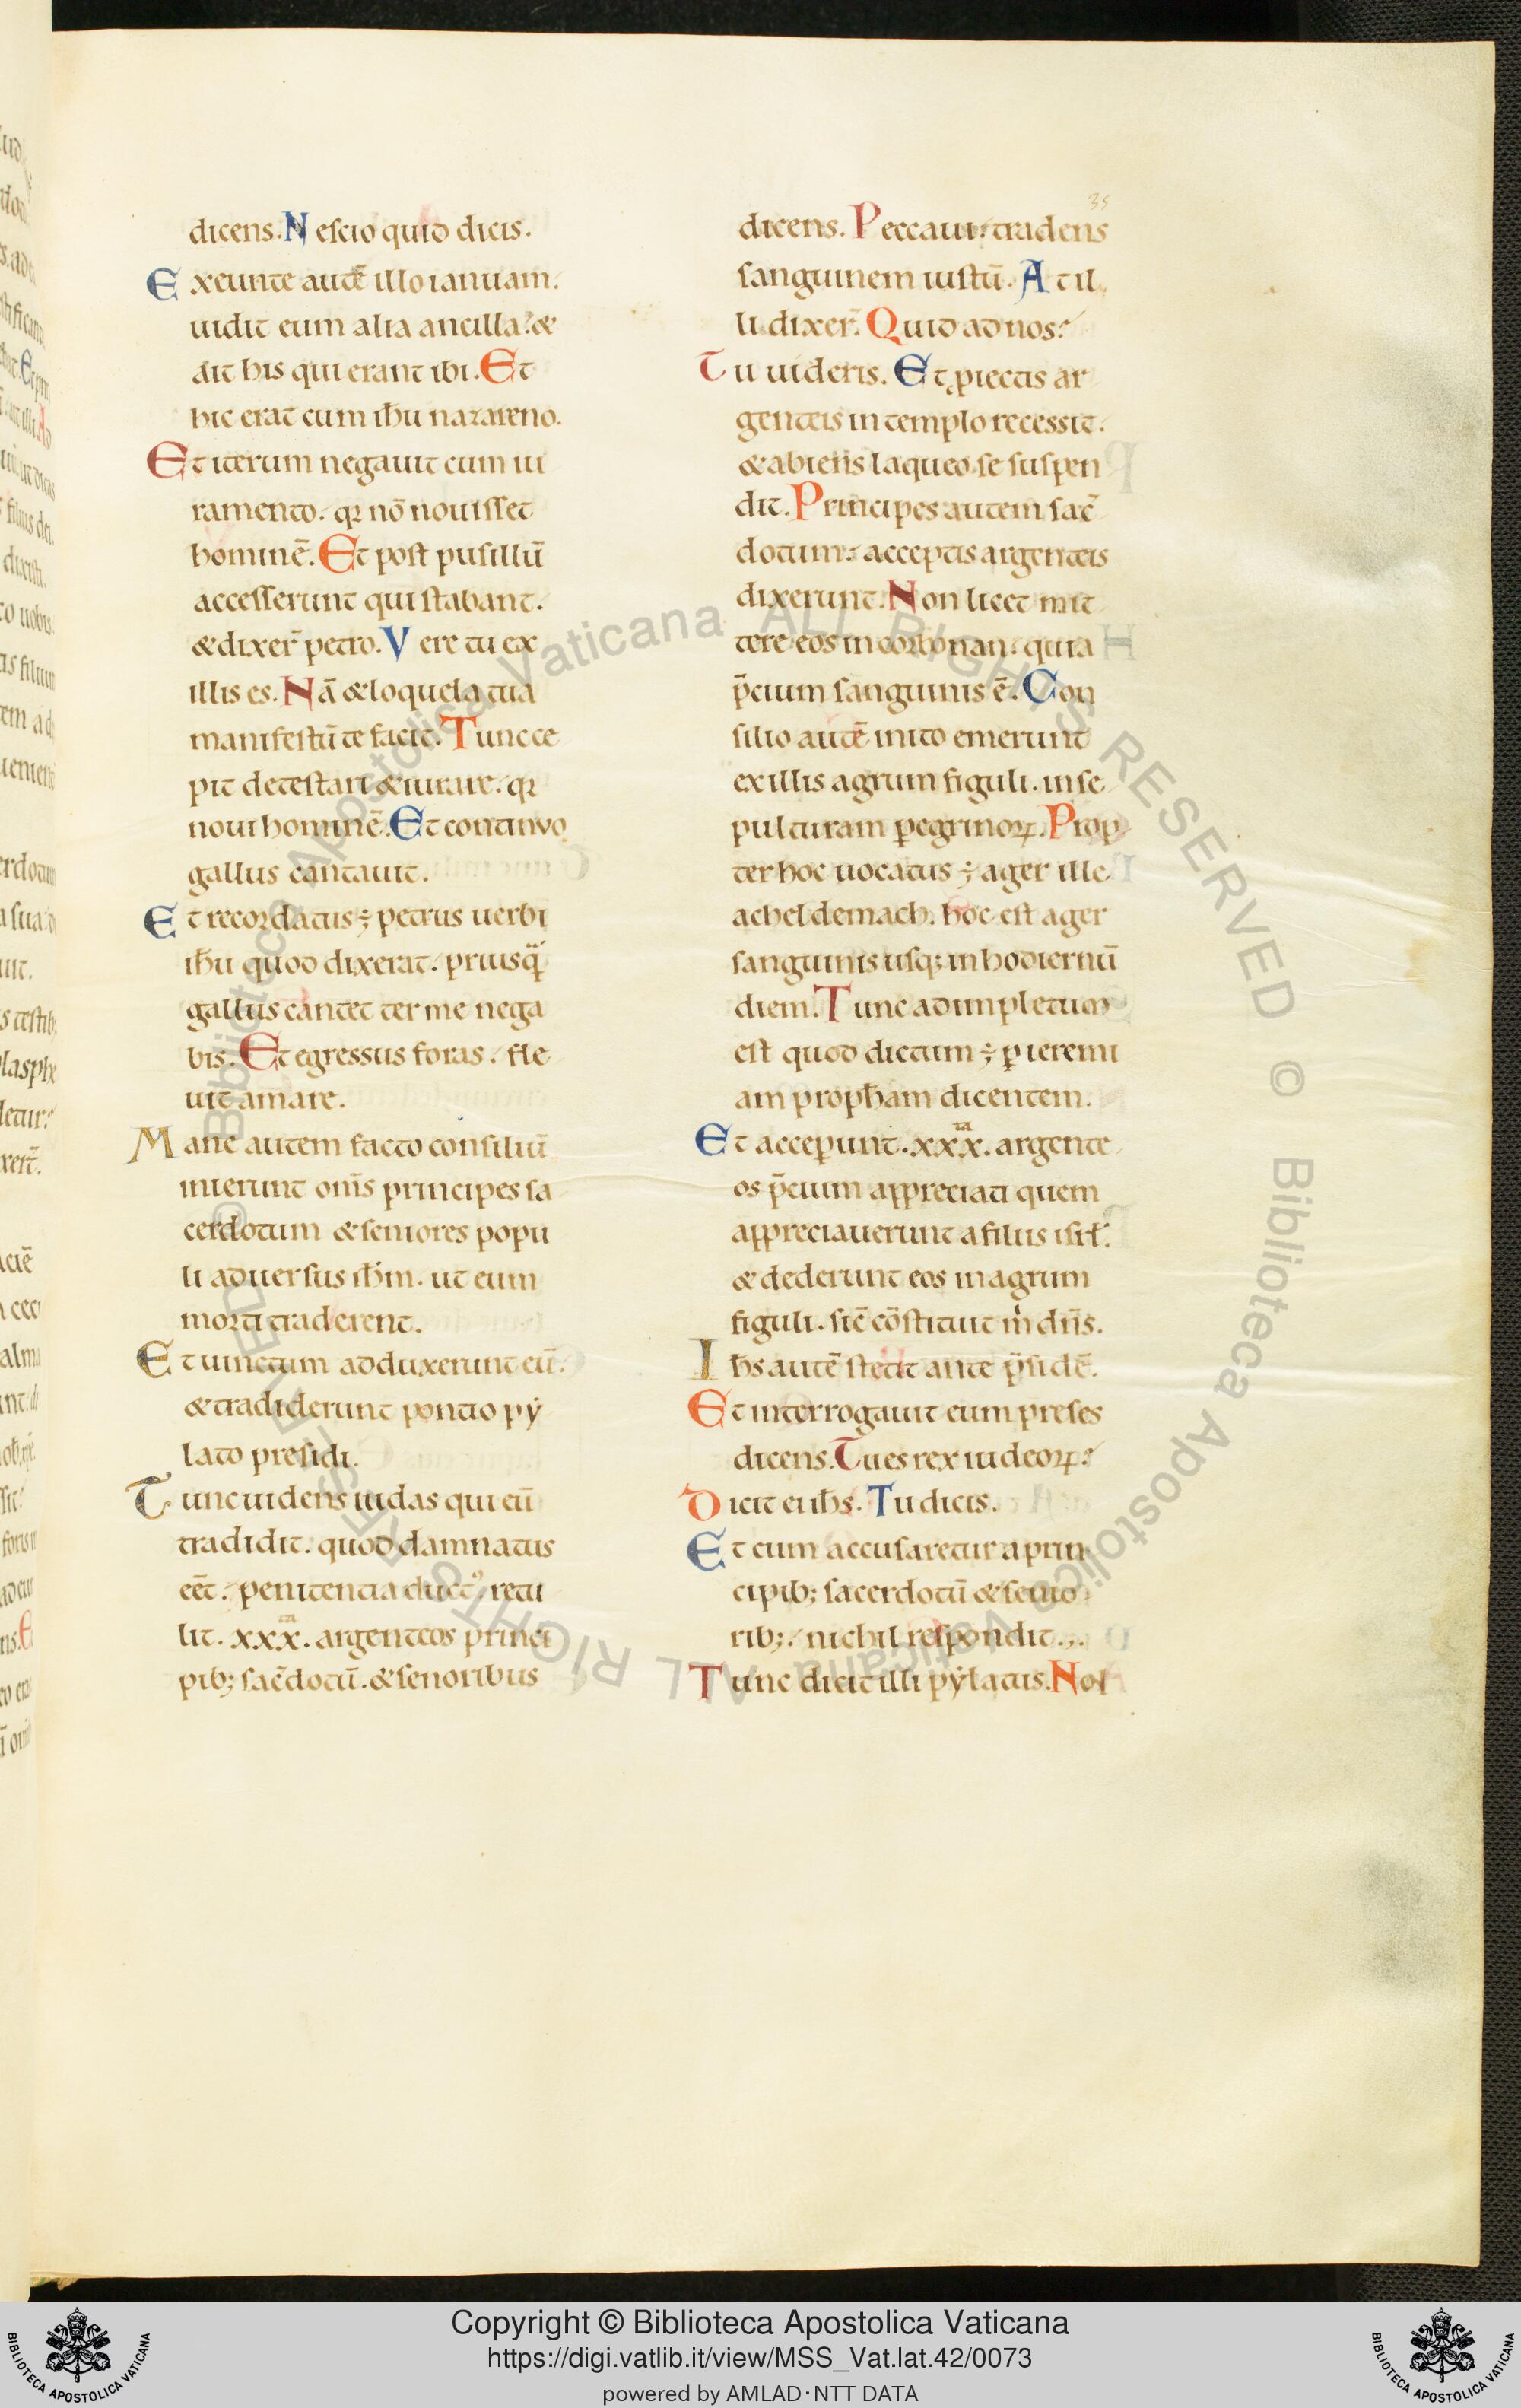 35
dicens. Nescio quid dicis.
Exeunte autē illo ianuam.
uidit eum alia ancilla. &
ait his qui erant ibi. Et
hic erat cum ihu nazareno.
Et iterum negauit cum iu
ramento. qꝛ nō nouisset
hominē. Et post pusillū
accesserunt qui stabant.
& dixer̄ petro. Vere tu ex
illis es. Nā & loquela tua
manifestū te facit. Tunc ce
pit detestari & iurare. qꝛ
noui hominē. Et continvo
gallus cantauit.
Et recordatus ÷ petrus uerbi
ihu quod dixerat. priusq̄
gallus cantet ter me nega
bis. Et egressus foras. fle
uit amare.
Mane autem facto consiliū
inierunt om̄s principes sa
cerdotum & seniores popu
li aduersus ihm. ut eum
morti traderent.
Et uinctum adduxerunt eū.
& tradiderunt pontio pẏ
lato presidi.
Tunc uidens iudas qui eū
tradidit. quod damnatus
eēt. penitentia ductꝰ. retu
lit. xxx̃. argenteos princi
pib; sac̄dotū. & senoribus
dicens. Peccaui. tradens
sanguinem iustū. At il
li dixer̄. Quid ad nos?
Tu uideris. Et ꝓiectis ar
genteis in templo recessit.
& abiens laqueo se suspen
dit. Principes autem sac̄
dotum. acceptis argenteis
dixerunt. Non licet mit
tere eos in corbonan. quia
p̄cium sanguinis ē. Con
silio autē inito emerunt
ex illis agrum figuli. in se
pulturam ꝑegrinoꝝ. Prop
ter hoc uocatus ÷ ager ille
acheldemach. hoc est ager
sanguinis usq; in hodiernū
diem. Tunc adimpletum
est quod dictum ÷ ꝑ ieremi
am proph̄am dicentem.
Et acceꝑunt. xxx̃. argente
os p̄cium appreciati quem
appreciauerunt a filiis isrl̄.
& dederunt eos in agrum
figuli. sic̄ cōstituit m̍ dn̄s.
Ihs autē stetit ante p̄sidē.
Et interrogauit eum preses
dicens. Tu es rex iudeoꝝ?
Dicit ei ihs. Tu dicis.
Et cum accusaretur a prin
cipib; sacerdotū & senio
rib;. nichil respondit.
Tunc dicit illi pẏlatus. Non
Copyright © Biblioteca Apostolica Vaticana
https://digi.vatlib.it/view/MSS_Vat.lat.42/0073
powered by AMLAD·NTT DATA
BIBLIOTECA APOSTOLICA VATICANA
BIBLIOTECA APOSTOLICA VATICANA
© Biblioteca Apostolica Vaticana ALL RIGHTS RESERVED © Biblioteca Apostolica Vaticana ALL RIGHTS RESERVED